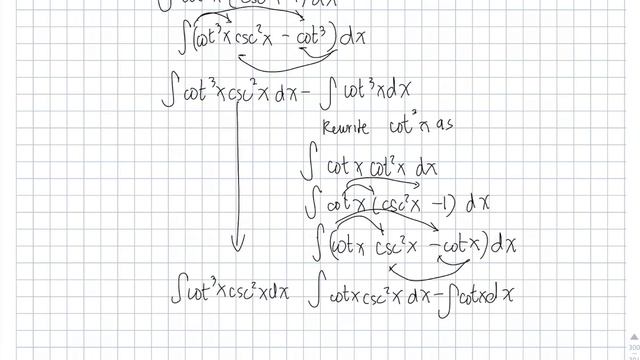 ∫(cot³x csc²x − cot³) dx
∫ cot³x csc²x dx − ∫ cot³x dx
Rewrite cot³x as
∫ cotx cot²x dx
∫ cotx (csc²x −1) dx
∫(cotx csc²x − cotx) dx
∫cot³x csc²x dx ∫ cotx csc²x dx − ∫cotx dx